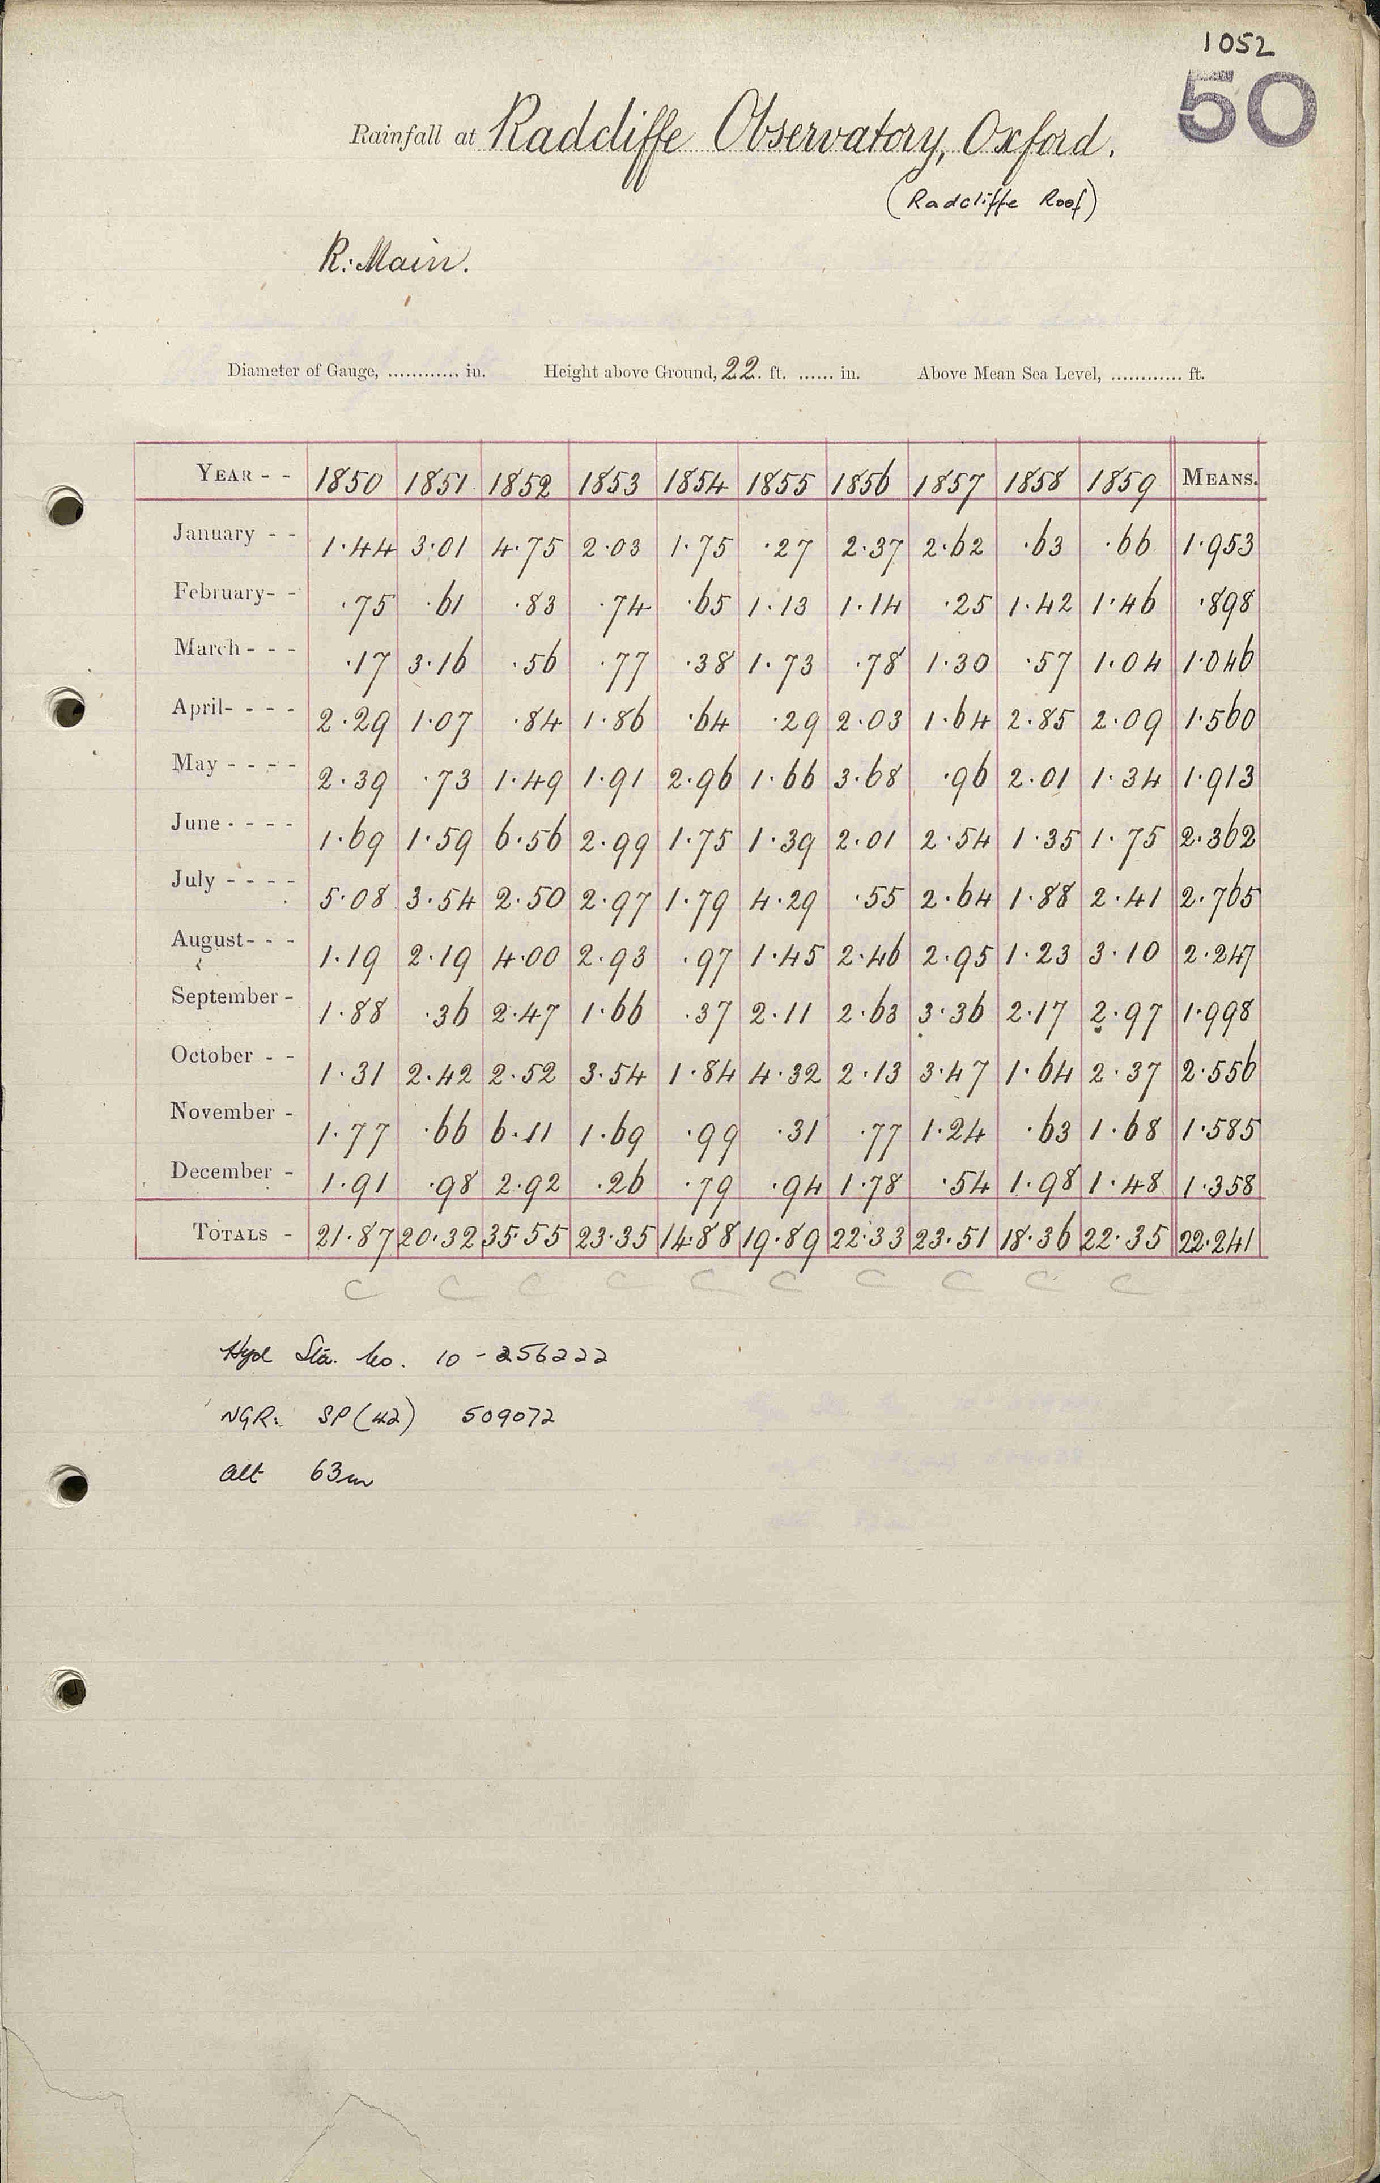 1052
50
Rainfall at Radcliffe Observatory, Oxford.
(Radcliffe Roof)
R. Main.
Diameter of Gauge, ............ in. Height above Ground, 22 ft. ...... in. Above Mean Sea Level, ............ ft.
YEAR - - 1850 1851 1852 1853 1854 1855 1856 1857 1858 1859 MEANS.
January - - 1.44 3.01 4.75 2.03 1.75 .27 2.37 2.62 .63 .66 1.953
February- - .75 .61 .83 .74 .65 1.13 1.14 .25 1.42 1.46 .898
March - - - .17 3.16 .56 .77 .38 1.73 .78 1.30 .57 1.04 1.046
April- - - - 2.29 1.07 .84 1.86 .64 .29 2.03 1.64 2.85 2.09 1.560
May - - - - 2.39 .73 1.49 1.91 2.96 1.66 3.68 .96 2.01 1.34 1.913
June - - - - 1.69 1.59 6.56 2.99 1.75 1.39 2.01 2.54 1.35 1.75 2.362
July - - - - 5.08 3.54 2.50 2.97 1.79 4.29 .55 2.64 1.88 2.41 2.765
August- - - 1.19 2.19 4.00 2.93 .97 1.45 2.46 2.95 1.23 3.10 2.247
September - 1.88 .36 2.47 1.66 .37 2.11 2.63 3.36 2.17 2.97 1.998
October - - 1.31 2.42 2.52 3.54 1.84 4.32 2.13 3.47 1.64 2.37 2.556
November - 1.77 .66 6.11 1.69 .99 .31 .77 1.24 .63 1.68 1.585
December - 1.91 .98 2.92 .26 .79 .94 1.78 .54 1.98 1.48 1.358
TOTALS - 21.87 20.32 35.55 23.35 14.88 19.89 22.33 23.51 18.36 22.35 22.241
C C C C C C C C C C
Hyd Sta. No. 10 - 256222
NGR: SP (42) 509072
alt 63m